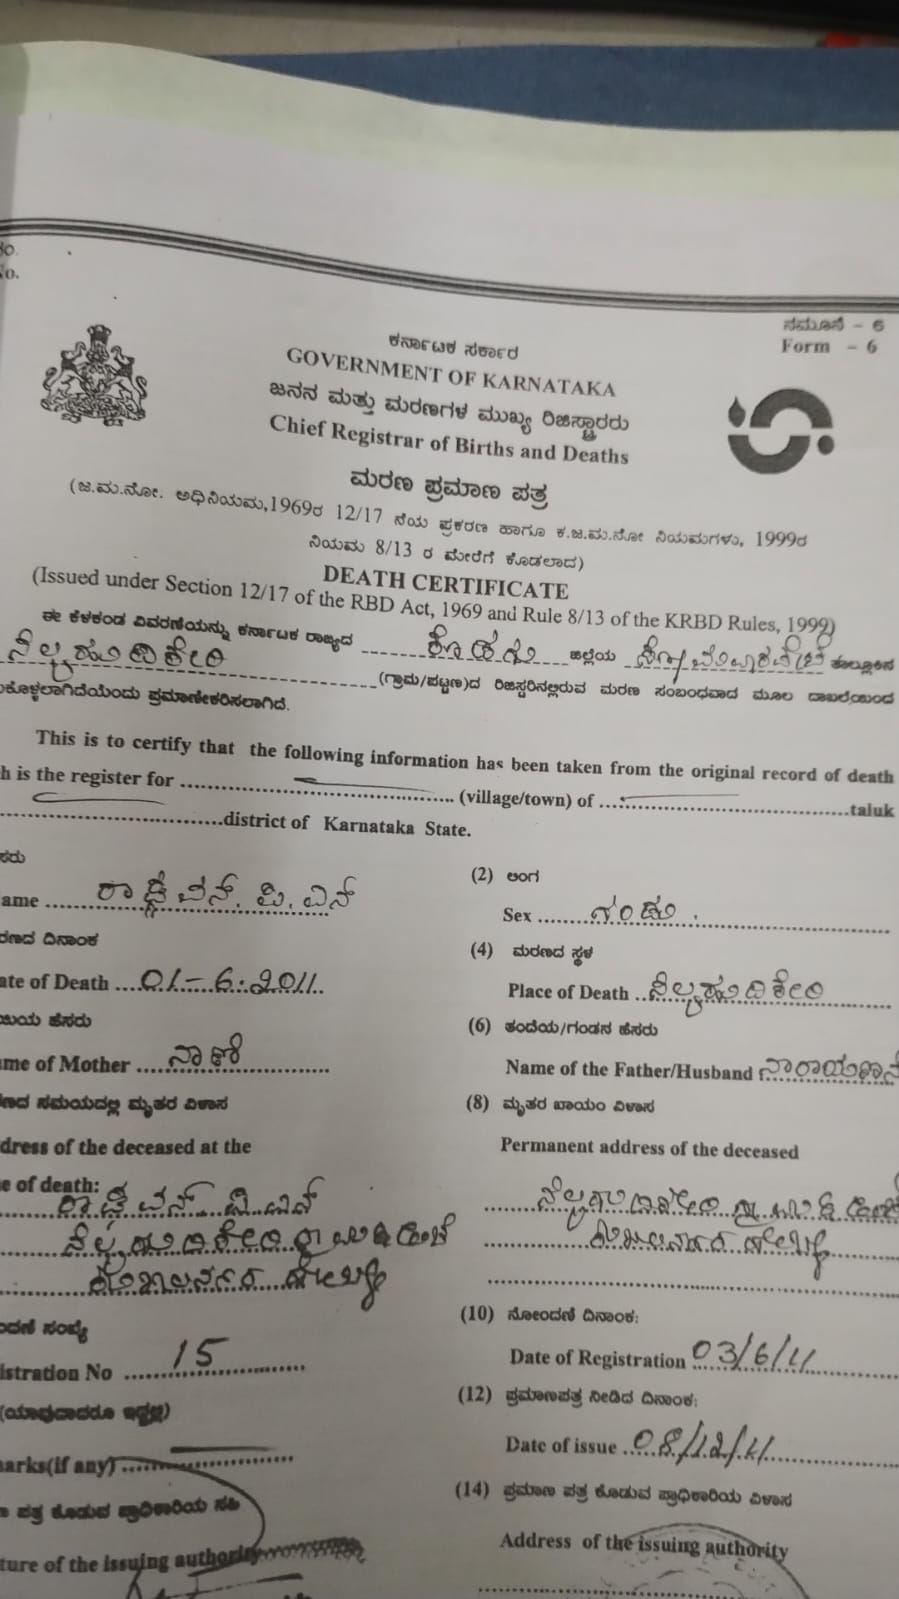 ನಮೂನೆ - 6
No.
Form - 6
ಕರ್ನಾಟಕ ಸರ್ಕಾರ
GOVERNMENT OF KARNATAKA
ಜನನ ಮತ್ತು ಮರಣಗಳ ಮುಖ್ಯ ರಿಜಿಸ್ಟ್ರಾರರು
Chief Registrar of Births and Deaths
ಮರಣ ಪ್ರಮಾಣ ಪತ್ರ
(ಜ.ಮ.ನೋ. ಅಧಿನಿಯಮ,1969ರ 12/17 ನೆಯ ಪ್ರಕರಣ ಹಾಗೂ ಕ.ಜ.ಮ.ನೋ ನಿಯಮಗಳು, 1999ರ
ನಿಯಮ 8/13 ರ ಮೇರೆಗೆ ಕೊಡಲಾದ)
DEATH CERTIFICATE
(Issued under Section 12/17 of the RBD Act, 1969 and Rule 8/13 of the KRBD Rules, 1999)
ಈ ಕೆಳಕಂಡ ವಿವರಣೆಯನ್ನು ಕರ್ನಾಟಕ ರಾಜ್ಯದ ಕೊಡಗು ಜಿಲ್ಲೆಯ ಸೋಮವಾರಪೇಟೆ ತಾಲ್ಲೂಕಿನ
ನೆಲ್ಯಹುದಿಕೇರಿ (ಗ್ರಾಮ/ಪಟ್ಟಣ)ದ ರಿಜಿಸ್ಟರಿನಲ್ಲಿರುವ ಮರಣ ಸಂಬಂಧವಾದ ಮೂಲ ದಾಖಲೆಯಿಂದ
ಕೊಳ್ಳಲಾಗಿದೆಯೆಂದು ಪ್ರಮಾಣೀಕರಿಸಲಾಗಿದೆ.
This is to certify that the following information has been taken from the original record of death
h is the register for (village/town) of taluk
district of Karnataka State.
ಸರು (2) ಲಿಂಗ
ame Sex ಗಂಡು
ರಣದ ದಿನಾಂಕ (4) ಮರಣದ ಸ್ಥಳ
ate of Death 01-6-2011 Place of Death ನೆಲ್ಯಹುದಿಕೇರಿ
ಯಿಯ ಹೆಸರು (6) ತಂದೆಯ/ಗಂಡನ ಹೆಸರು
me of Mother ನಾಣಿ Name of the Father/Husband ನಾರಾಯಣನ್
ಣದ ಸಮಯದಲ್ಲಿ ಮೃತರ ವಿಳಾಸ (8) ಮೃತರ ಖಾಯಂ ವಿಳಾಸ
dress of the deceased at the Permanent address of the deceased
e of death:
ನೆಲ್ಯಹುದಿಕೇರಿ ನೆಲ್ಯಹುದಿಕೇರಿ
ಂದಣಿ ಸಂಖ್ಯೆ (10) ನೋಂದಣಿ ದಿನಾಂಕ:
istration No 15 Date of Registration 03/6/11
(ಯಾವುದಾದರೂ ಇದ್ದಲ್ಲಿ) (12) ಪ್ರಮಾಣಪತ್ರ ನೀಡಿದ ದಿನಾಂಕ:
marks(if any) Date of issue 08/12/11
ಣ ಪತ್ರ ಕೊಡುವ ಪ್ರಾಧಿಕಾರಿಯ ಸಹಿ (14) ಪ್ರಮಾಣ ಪತ್ರ ಕೊಡುವ ಪ್ರಾಧಿಕಾರಿಯ ವಿಳಾಸ
ture of the issuing authority Address of the issuing authority